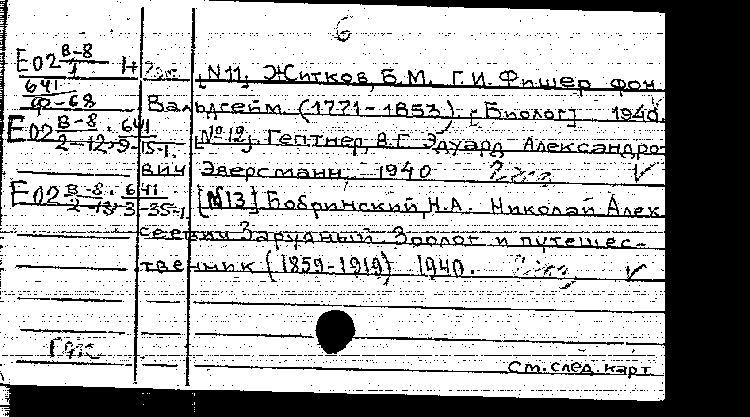 6
Е02 В-8/1 [N11] Житков, Б.М. Г.И. Фишер фон
641/Ф-68 Вальдгейм. (1771-1853). [Биолог] 1940.
Е02 В-8/2-12 641 [№12] Гептнер, В.Г. Эдуард Александро-
вич Эверсманн, 1940
Е02 В-8 641 [N13] Бобринский, Н.А. Николай Алек
сеевич Зарудный. Зоолог и путешес-
твенник (1859-1919) 1940.
См. след. карт